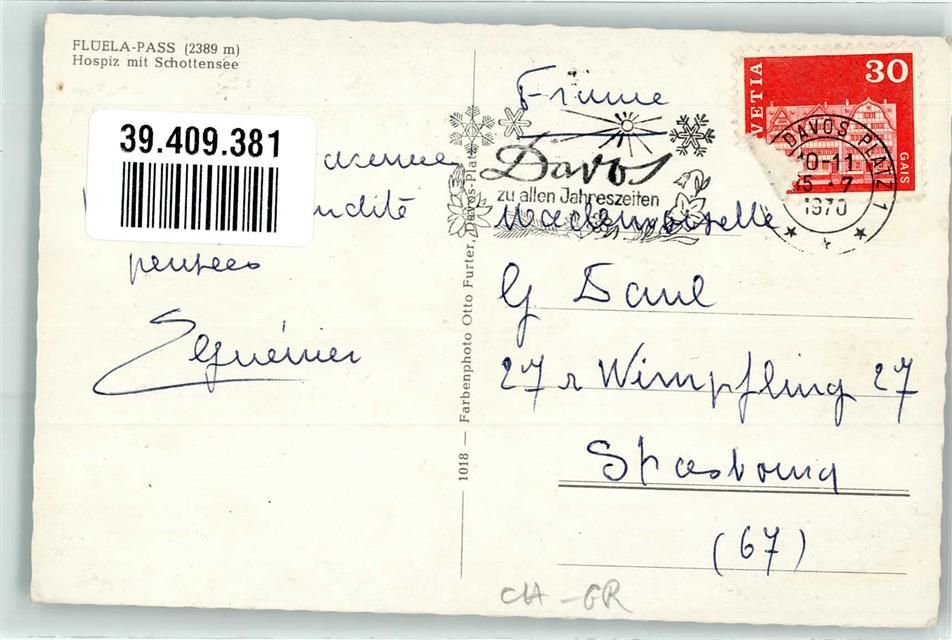 FLÜELA-PASS (2389 m)
Hospiz mit Schottensee
39.409.381
pensees
1018 — Farbenphoto Otto Furter, Davos-Platz
Davos
zu allen Jahreszeiten
VETIA
30
GAIS
DAVOS PLATZ 1
10-11
15 -7
1970
Mademoiselle
G Daul
27 r Wimpfling 27
Strasbourg
(67)
CH - GR